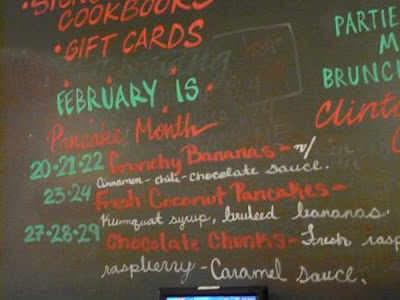 COOKBOOKS
• GIFT CARDS
FEBRUARY IS
Pancake Month
20-21-22 Crunchy Bananas - w/
Cinnamon - chili - chocolate sauce.
23-24 Fresh Coconut Pancakes -
Kumquat syrup, bruleed bananas.
27-28-29 Chocolate Chunks - Fresh rasp
raspberry - Caramel sauce.
PARTIE
M
BRUNCH
Clinto